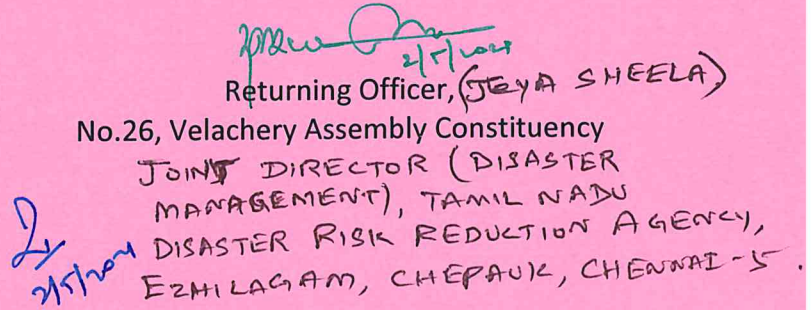 2/5/2021
Returning Officer, (JEYA SHEELA)
No.26, Velachery Assembly Constituency
JOINT DIRECTOR (DISASTER
MANAGEMENT), TAMIL NADU
DISASTER RISK REDUCTION AGENCY,
EZHILAGAM, CHEPAUK, CHENNAI-5.
2/5/2021